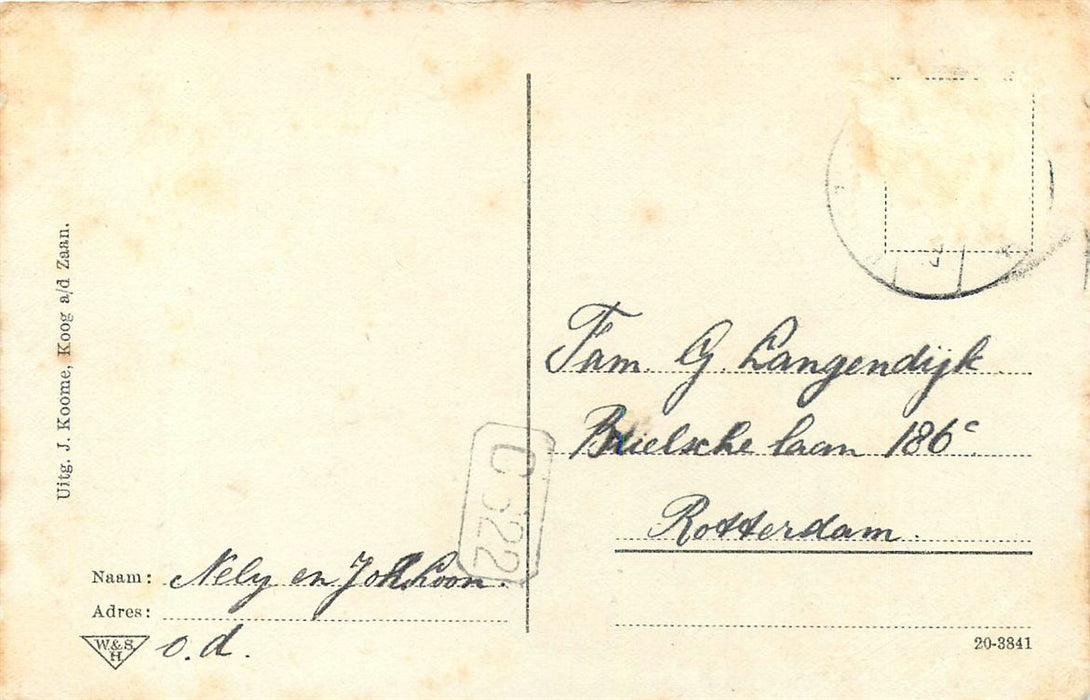 Uitg. J. Koome, Koog a/d Zaan.
Fam. G. Langendijk
Brielsche laan 186c
Rotterdam.
Naam: Nely en Joh. Loon.
Adres:
o.d.
W.&S.
H.
20-3841